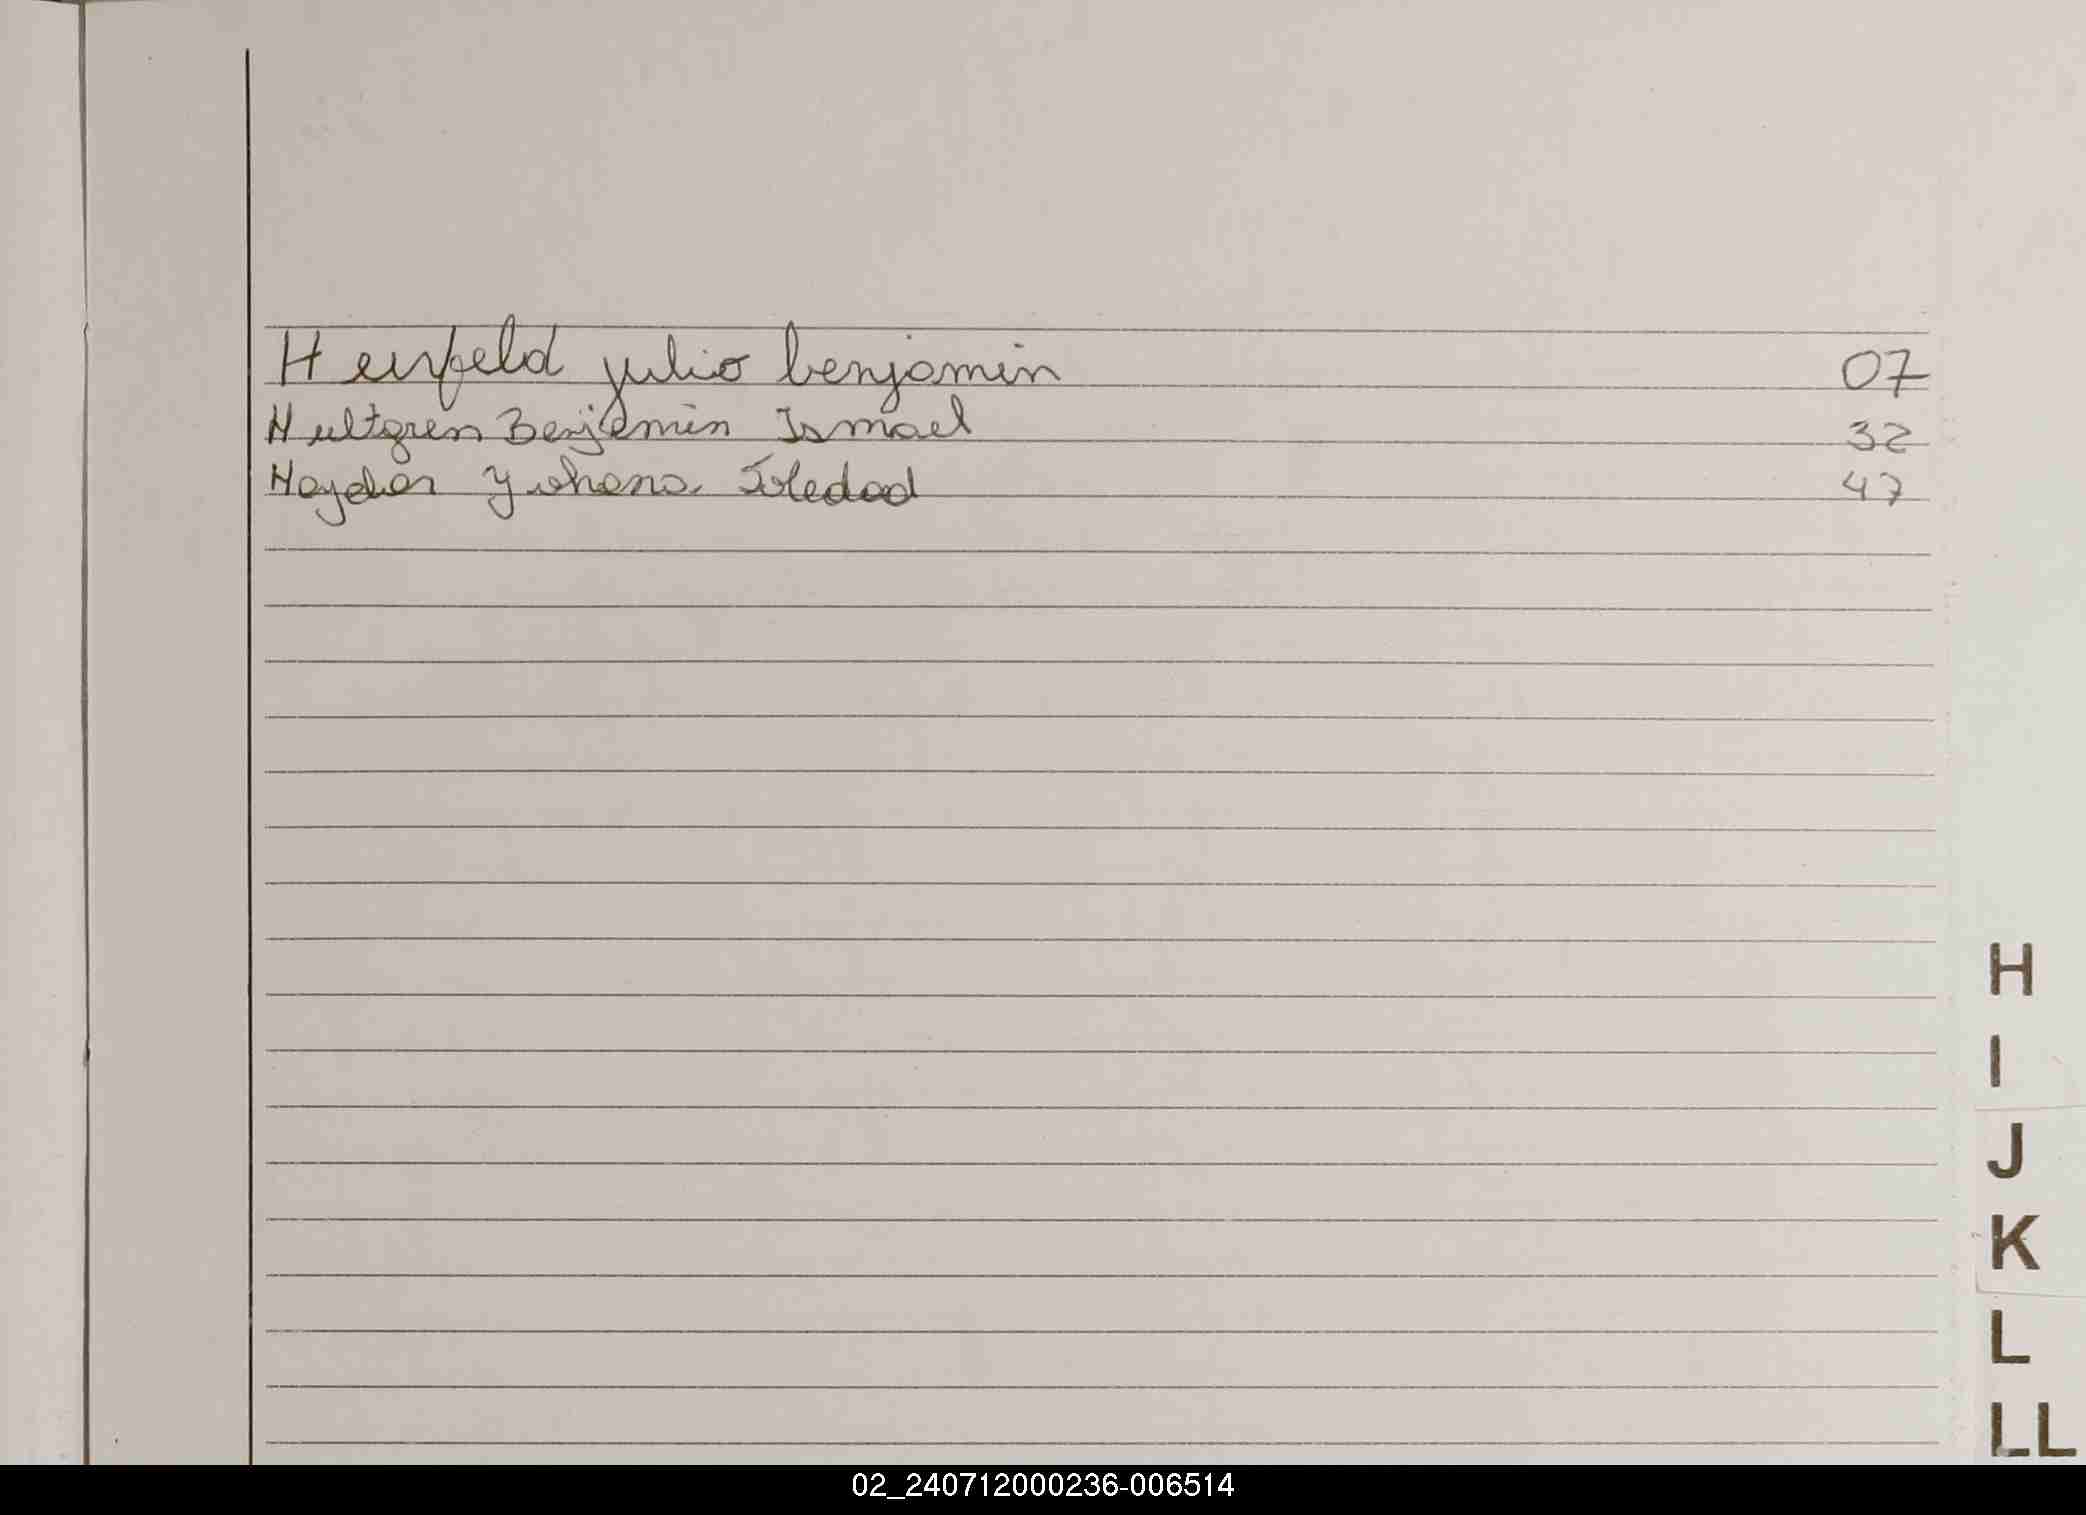 Heinfeld julio benjamin 07
Hultgren Benjamin Ismael 32
Haydar Yohana Soledad 47
H
I
J
K
L
LL
02_240712000236-006514